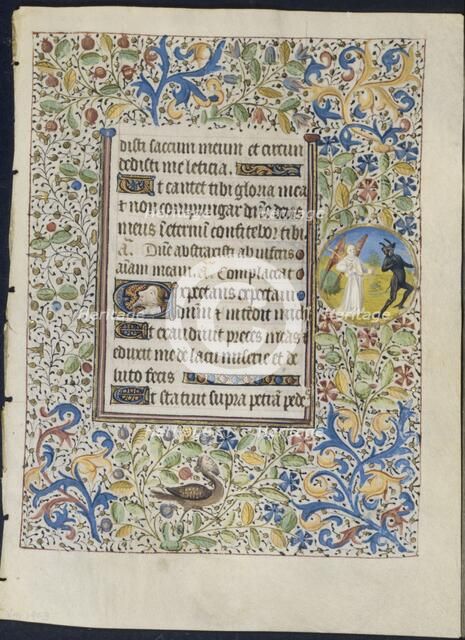 disti saccum meum et circun
dedisti me leticia.
Ut cantet tibi gloria mea
et non compungar dñe deus
meus in eternum confitebor tibi.
A. Dñe abstraxisti ab inferis
aiam meam. A. Complaceat
Expectans expectavi
dñum et intendit michi
Et exaudivit preces meas et
eduxit me de lacu miserie et de
luto fecis
Et statuit supra petrã pede
Heritage
Heritage